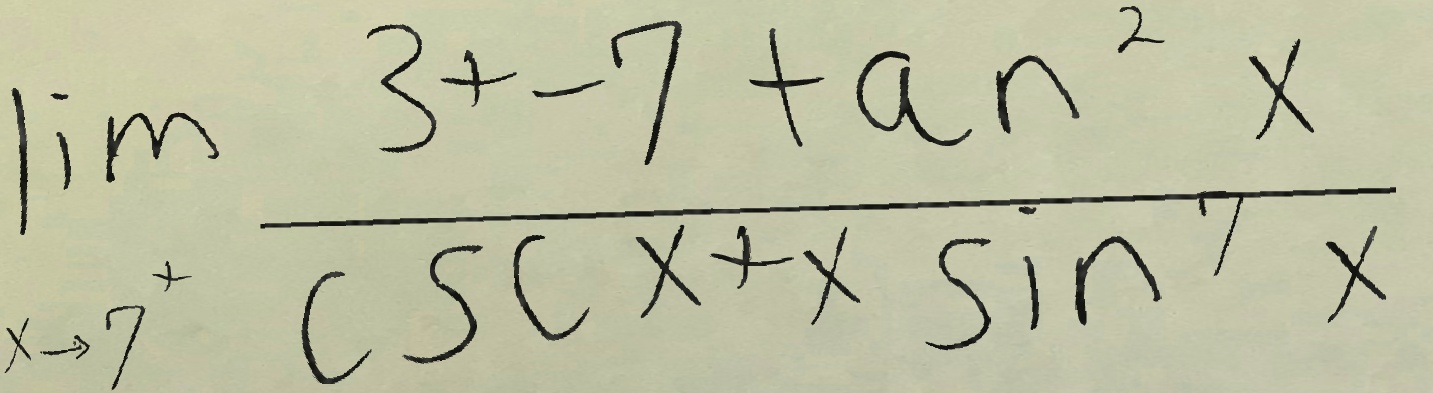 \lim_{x \to 7^+} \frac{3 + -7 \tan^2 x}{\csc x + x \sin^7 x}